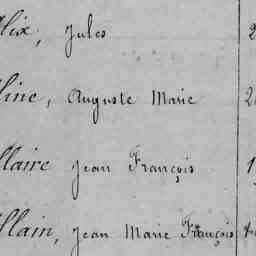 lix, Jules 2
line, Auguste Marie 2
llaire Jean François 1
llain, Jean Marie François